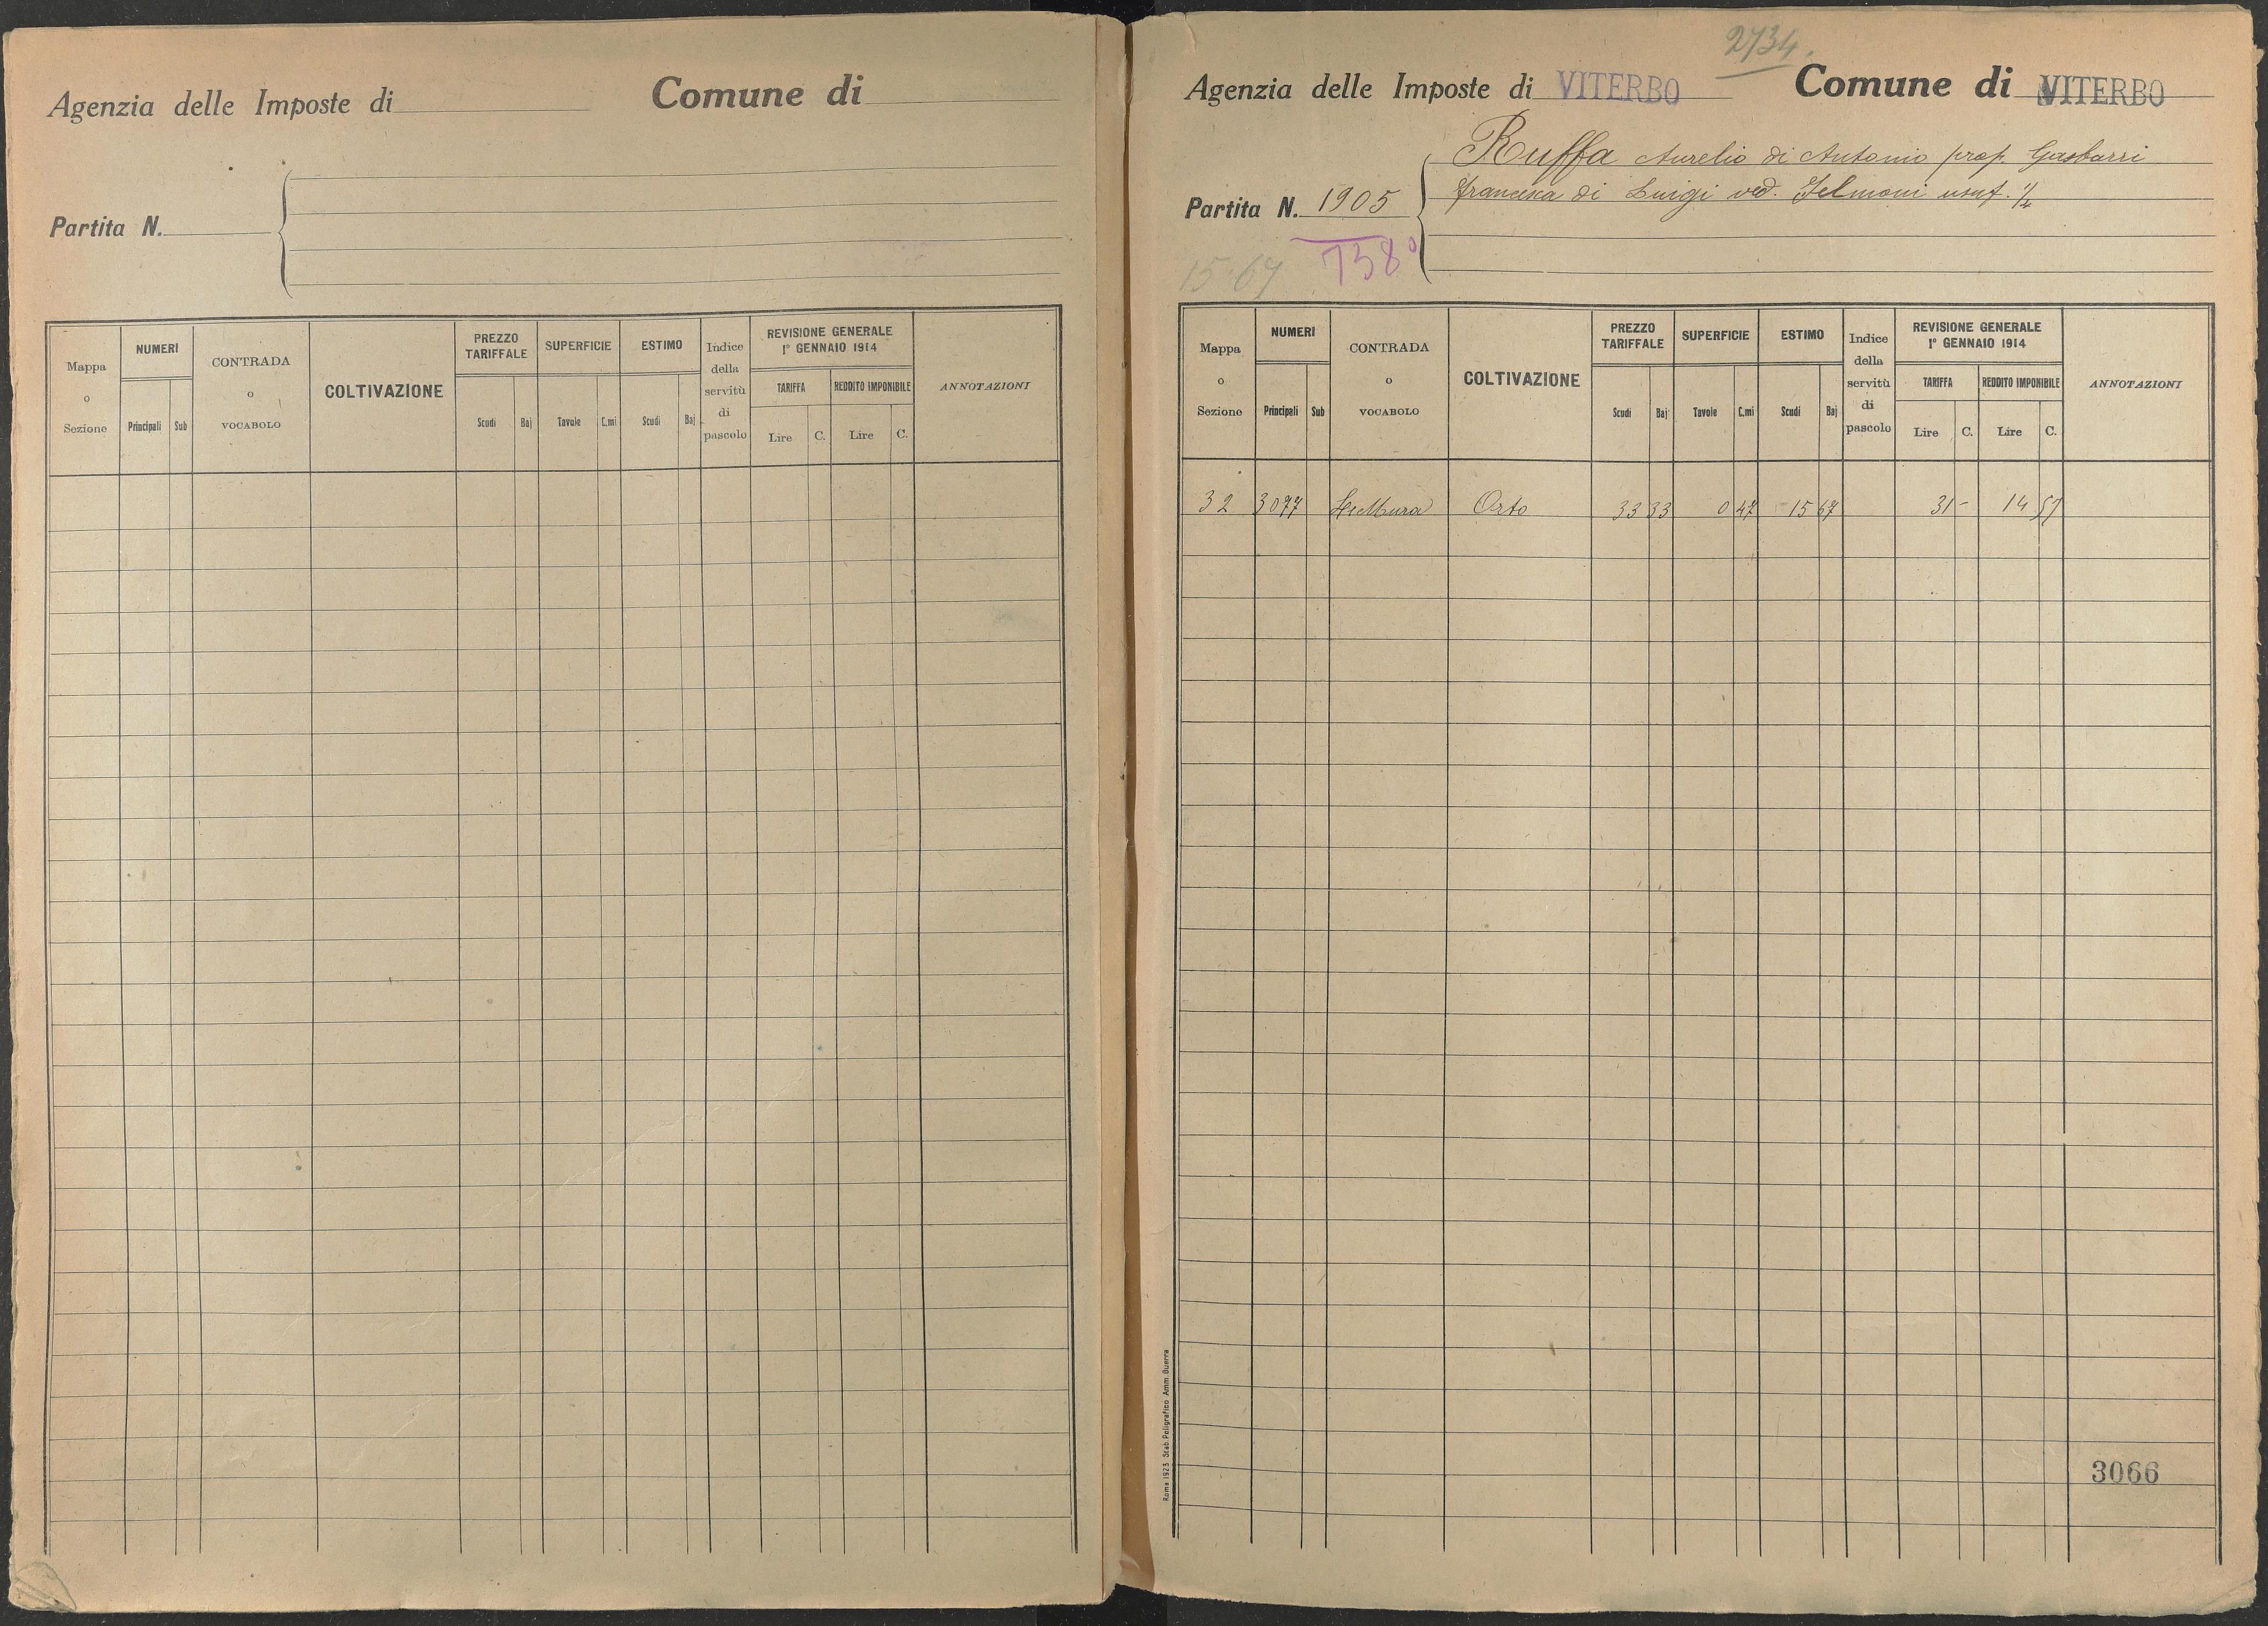 Agenzia delle Imposte di Comune di
Partita N.
Mappa o Sezione
NUMERI
Principali Sub
CONTRADA o VOCABOLO
COLTIVAZIONE
PREZZO TARIFFALE
Scudi Baj
SUPERFICIE
Tavole C.mi
ESTIMO
Scudi Baj
Indice della servitù di pascolo
REVISIONE GENERALE
1° GENNAIO 1914
TARIFFA REDDITO IMPONIBILE
Lire C. Lire C.
ANNOTAZIONI
2734.
Agenzia delle Imposte di VITERBO Comune di VITERBO
Ruffa Aurelio di Antonio prop. Gasbarri
Partita N. 1905 francesca di Luigi ved. Selmoni usuf. 1/4
738
15.67
Mappa o Sezione
NUMERI
Principali Sub
CONTRADA o VOCABOLO
COLTIVAZIONE
PREZZO TARIFFALE
Scudi Baj
SUPERFICIE
Tavole C.mi
ESTIMO
Scudi Baj
Indice della servitù di pascolo
REVISIONE GENERALE
1° GENNAIO 1914
TARIFFA REDDITO IMPONIBILE
Lire C. Lire C.
ANNOTAZIONI
32 3077 Le Mura Orto 33 33 0 47 15 67 31 - 14 57
Roma 1923 Stab. Poligrafico Amm. Guerra
3066